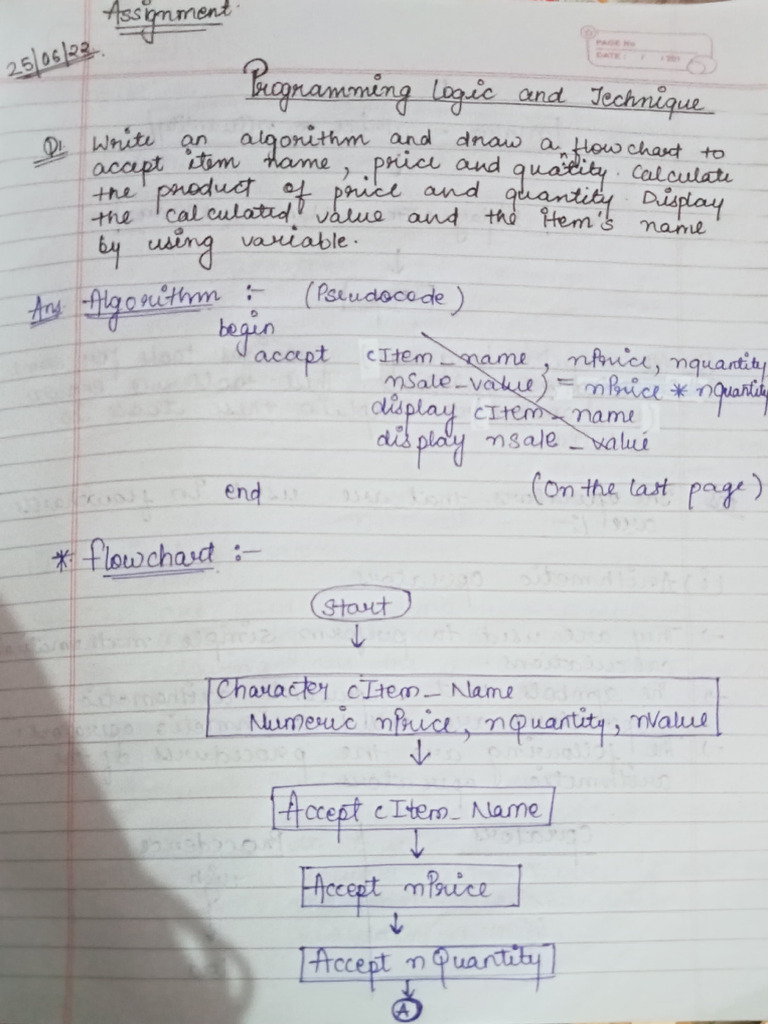 Assignment.
25/06/22.
PAGE No
DATE: / /201
Programming Logic and Technique
Q1. Write an algorithm and draw a flowchart to
accept item name, price and quantity. Calculate
the product of price and quantity. Display
the calculated value and the item's name
by using variable.
Ans. Algorithm :- (Pseudocode)
begin
accept cItem_name, nPrice, nquantity
nSale_value) = nPrice * nQuantity
display cItem_name
display nsale_value
end (On the last page)
* flowchart :-
Start
Character cItem_Name
Numeric nPrice, nQuantity, nValue
Accept cItem_Name
Accept nPrice
Accept nQuantity
A